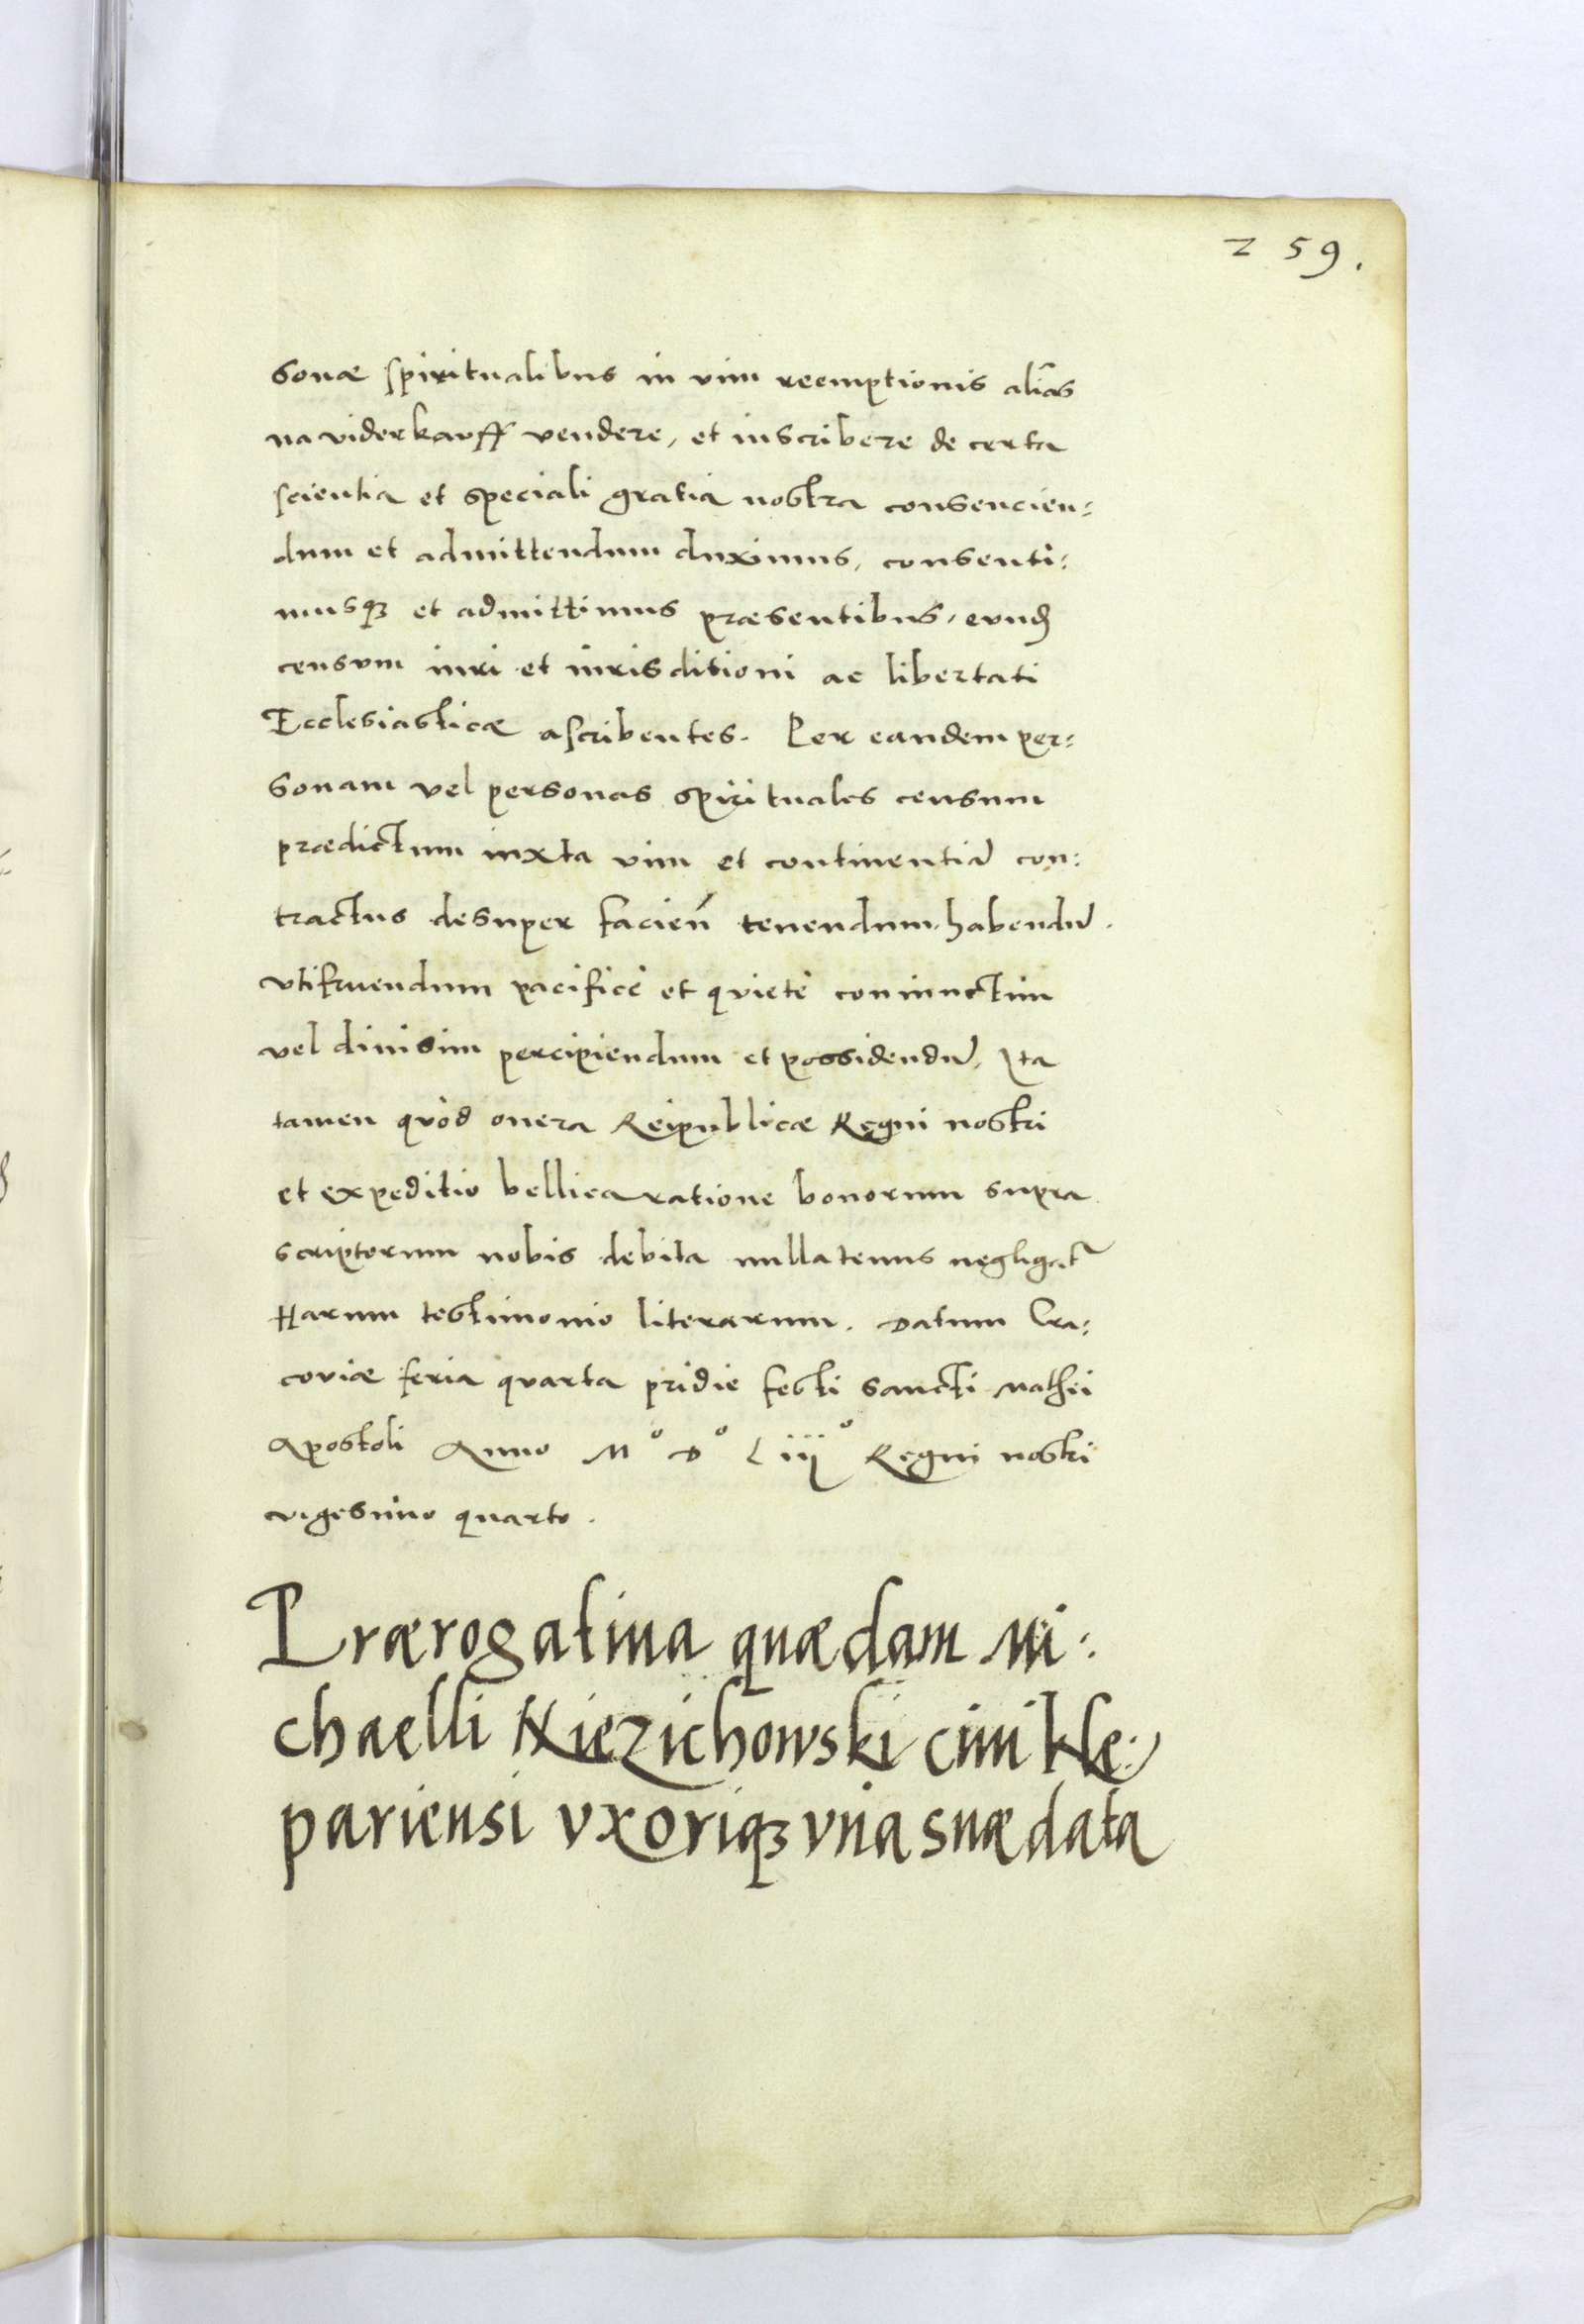 259.
sonæ spiritualibus in vim reemptionis aliãs
na viderkauff vendere, et inscribere de certa
scientia et speciali gratia nostra consencien:
dum et admittendum duximus, consenti:
musqꝫ et admittimus præsentibus, eundẽ
censum iuri et iurisditioni ac libertati
Ecclesiasticæ ascribentes. Per eandem per:
sonam vel personas spirituales censum
prædictum iuxta vim et continentiã con:
tractus desuper facień tenendum, habendũ.
vtifruendum pacificè et quietè coniunctim
vel diuisim percipiendum et possidendũ, Ita
tamen quòd onera Reipublicæ Regni nostri
et expeditio bellica ratione bonorum supra
scriptorum nobis debita nullatenus negligat᷑
Harum testimonio literarum. Datum Cra:
coviæ feria quarta pridie festi sancti Mathei
Apostoli Anno Mº Dº Liijº Regni nostri
vigesimo quarto.
Prærogatiua quædam Mi:
chaelli Kiezichowski ciui Kle:
pariensi vxoriqꝫ vna suæ data